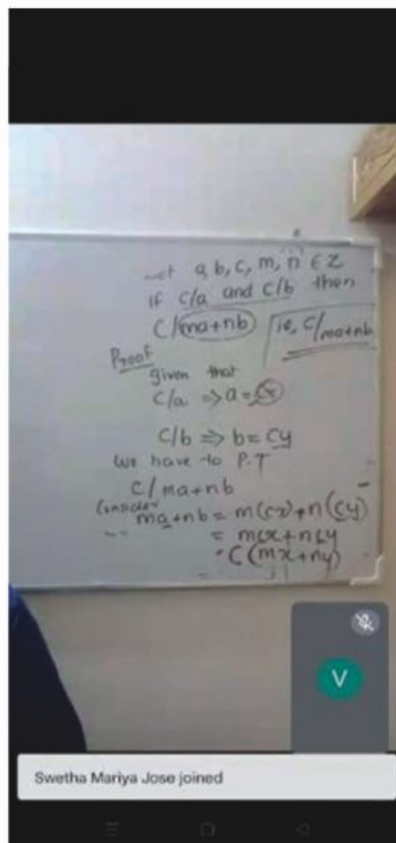 Let a, b, c, m, n ∈ Z
if c/a and c/b then
C/ma+nb ie, C/ma+nb
Proof
given that
c/a ⇒ a = cx
c/b ⇒ b = cy
we have to P.T
C/ma+nb
Consider
ma+nb = m(cx)+n(cy)
= mcx+ncy
= C(mx+ny)
V
Swetha Mariya Jose joined